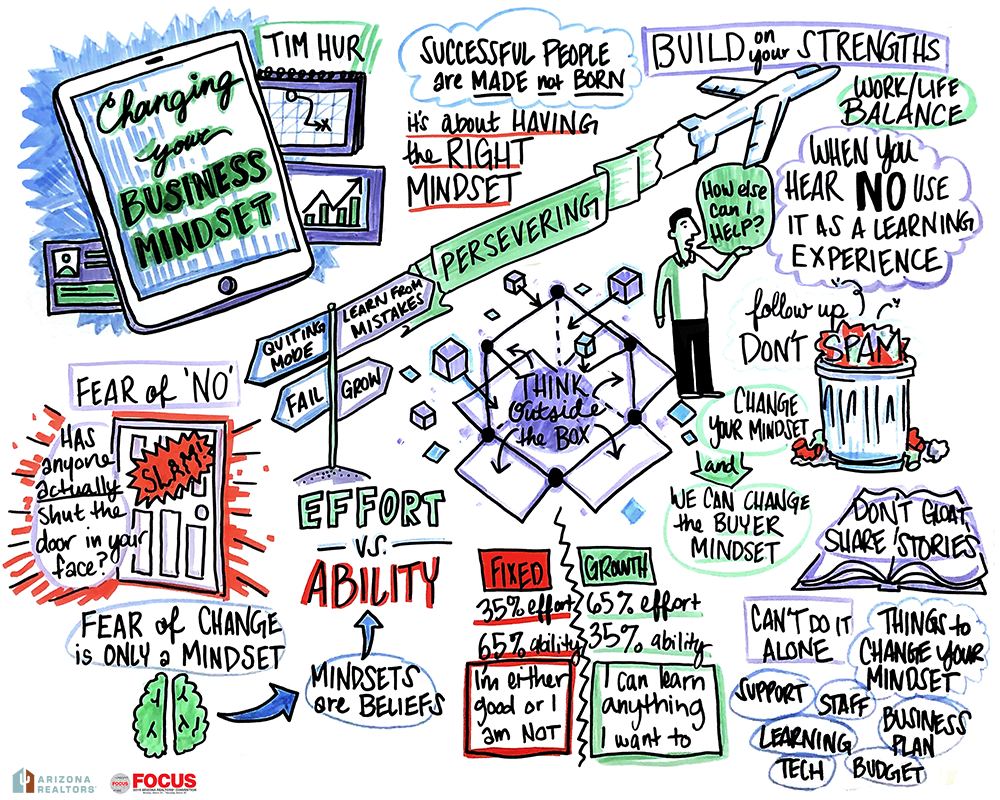 Changing
your
BUSINESS
MINDSET
TIM HUR
SUCCESSFUL PEOPLE
are MADE not BORN
it's about HAVING
the RIGHT
MINDSET
BUILD on your STRENGTHS
WORK/LIFE
BALANCE
WHEN YOU
HEAR NO USE
IT AS A LEARNING
EXPERIENCE
How else
can I
HELP?
PERSEVERING
LEARN FROM
MISTAKES
QUITING
MODE
FAIL
GROW
THINK
Outside
the BOX
follow up
DON'T SPAM
FEAR of 'NO'
HAS
anyone
actually
shut the
door in your
face?
SLAM!
EFFORT
VS.
ABILITY
CHANGE
YOUR MINDSET
and
WE CAN CHANGE
the BUYER
MINDSET
DON'T GLOAT,
SHARE 'STORIES'
FIXED
35% effort
65% ability
I'm either
good or I
am NOT
GROWTH
65% effort
35% ability
I can learn
anything
I want to
FEAR of CHANGE
is ONLY a MINDSET
MINDSETS
are BELIEFS
CAN'T DO IT
ALONE
THINGS to
CHANGE YOUR
MINDSET
SUPPORT
STAFF
BUSINESS
PLAN
LEARNING
TECH
BUDGET
ARIZONA
REALTORS
FOCUS